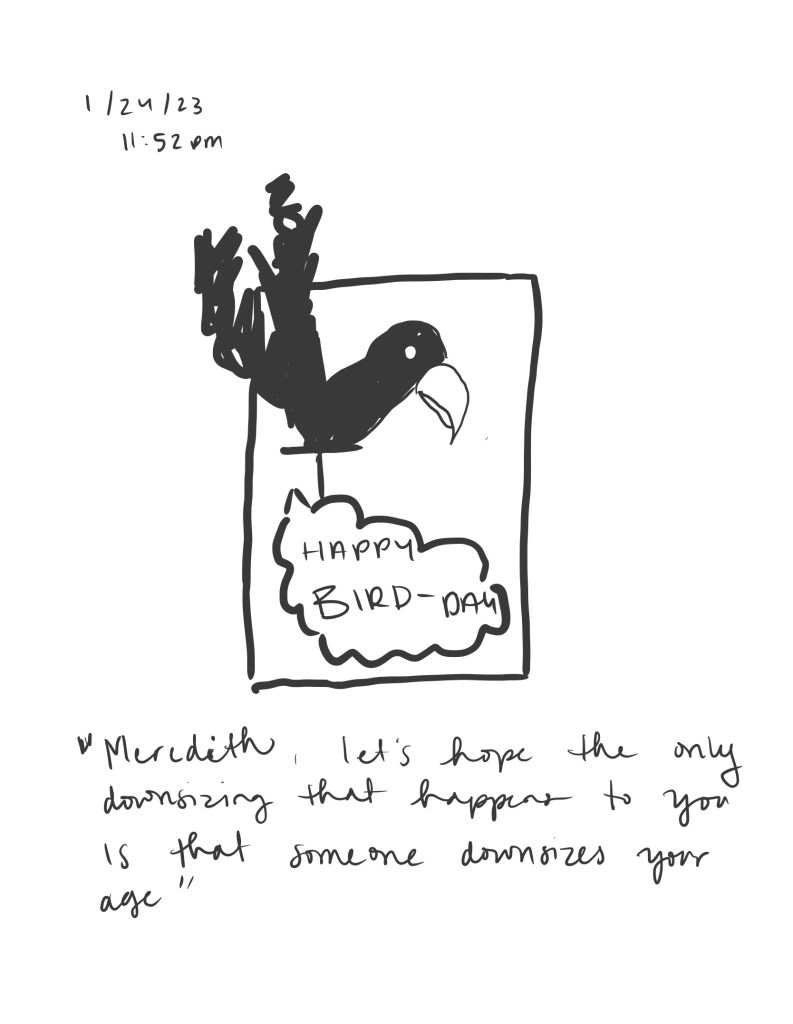 1/24/23
11:52 pm
HAPPY
BIRD-DAY
"Meredith, let's hope the only
downsizing that happens to you
is that someone downsizes your
age"